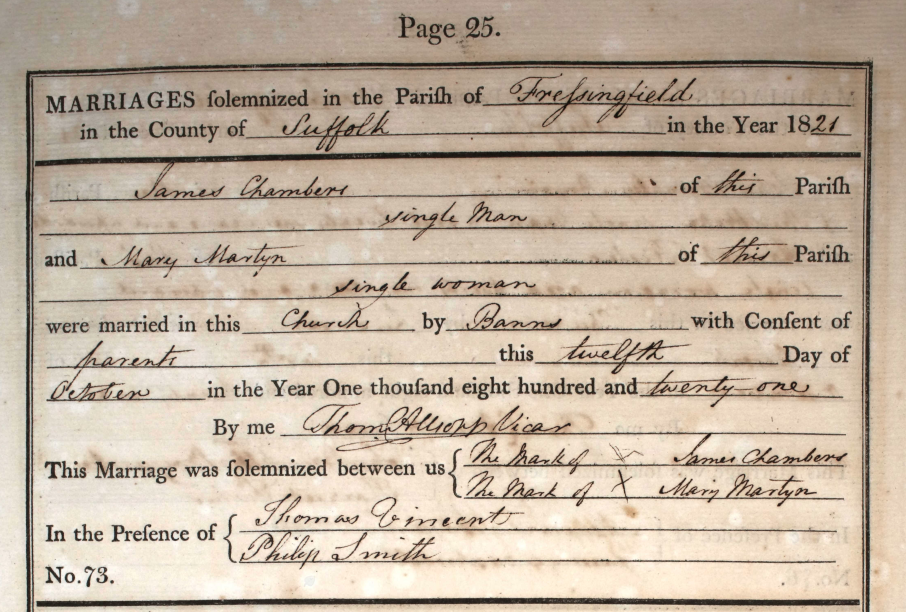 Page 25.
MARRIAGES ſolemnized in the Pariſh of Freſsingfield
in the County of Suffolk in the Year 1821
James Chambers of this Pariſh
single Man
and Mary Martyn of this Pariſh
single woman
were married in this Church by Banns with Conſent of
parents this twelfth Day of
October in the Year One thouſand eight hundred and twenty one
By me Thom Allsopp Vicar
This Marriage was ſolemnized between us { The Mark of X James Chambers
The Mark of X Mary Martyn
In the Preſence of { Thomas Vincent
Philip Smith
No. 73.